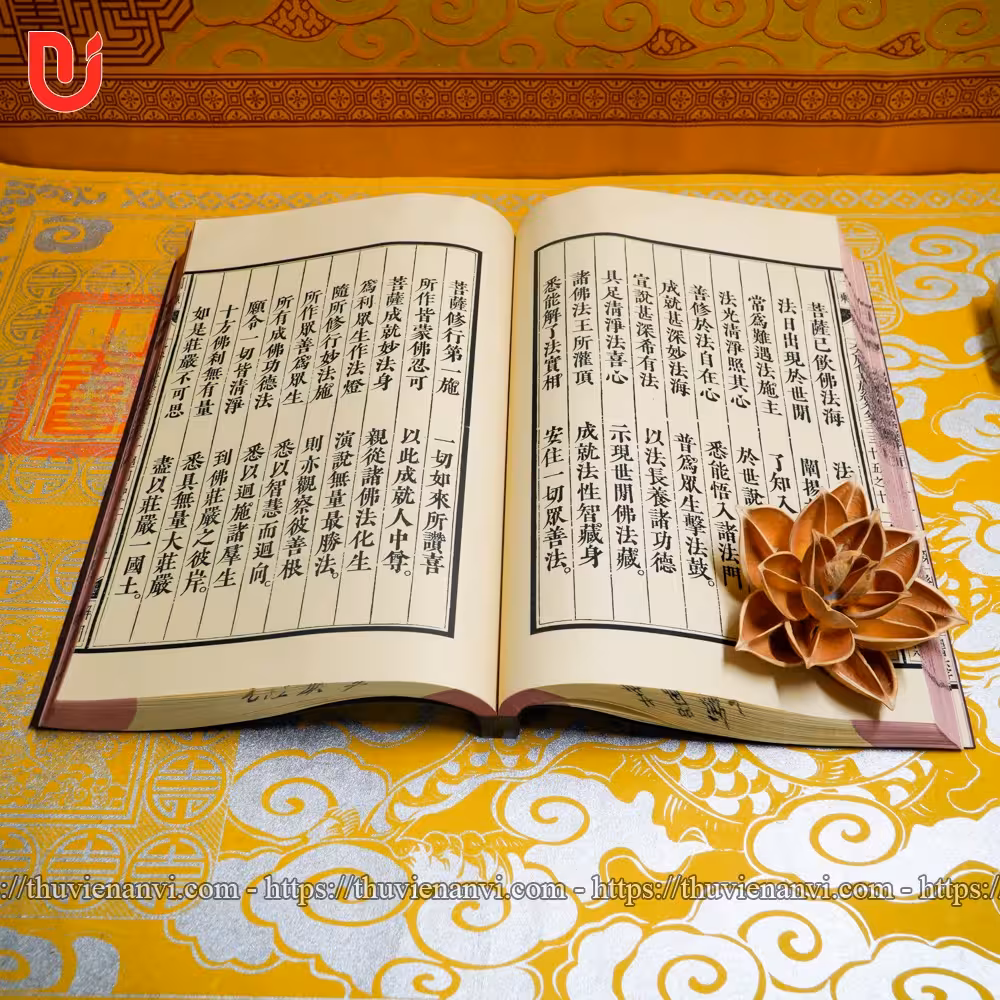 菩薩已飲佛法海　法
法日出現於世間　闡揚
常爲難遇法施主　了知入
法光清淨照其心　於世說
善修於法自在心　悉能悟入諸法門
成就甚深妙法海　普爲眾生擊法鼓。
宣說甚深希有法　以法長養諸功德
具足清淨法喜心　示現世間佛法藏。
諸佛法王所灌頂　成就法性智藏身
悉能解了法實相　安住一切眾善法。
菩薩修行第一施　一切如來所讚喜
所作皆蒙佛忍可　以此成就人中尊。
菩薩成就妙法身　親從諸佛法化生
爲利眾生作法燈　演說無量最勝法。
隨所修行妙法施　則亦觀察彼善根
所作眾善爲眾生　悉以智慧而迴向。
所有成佛功德法　悉以迴施諸羣生
願令一切皆清淨　到佛莊嚴之彼岸。
十方佛刹無有量　悉具無量大莊嚴
如是莊嚴不可思　盡以莊嚴一國土。
://thuvienanvi.com - https://thuvienanvi.com - https://thuvienanvi.com - https:/